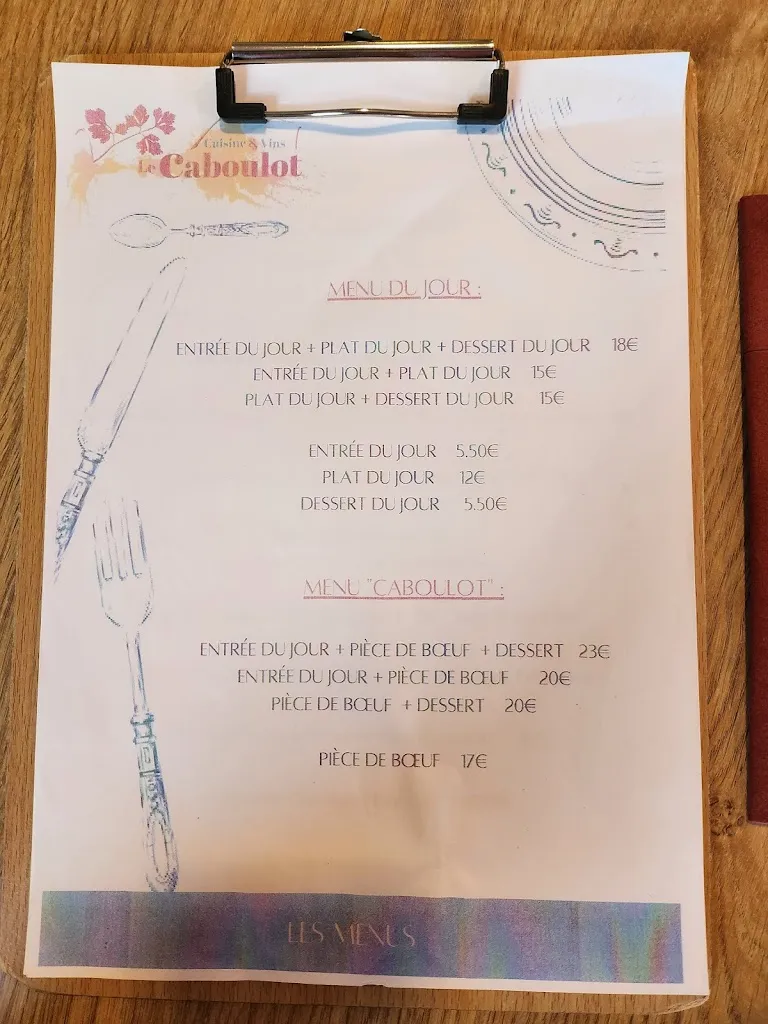 Cuisine & Vins
Le Caboulot
MENU DU JOUR :
ENTRÉE DU JOUR + PLAT DU JOUR + DESSERT DU JOUR 18€
ENTRÉE DU JOUR + PLAT DU JOUR 15€
PLAT DU JOUR + DESSERT DU JOUR 15€
ENTRÉE DU JOUR 5.50€
PLAT DU JOUR 12€
DESSERT DU JOUR 5.50€
MENU "CABOULOT" :
ENTRÉE DU JOUR + PIÈCE DE BŒUF + DESSERT 23€
ENTRÉE DU JOUR + PIÈCE DE BŒUF 20€
PIÈCE DE BŒUF + DESSERT 20€
PIÈCE DE BŒUF 17€
LES MENUS